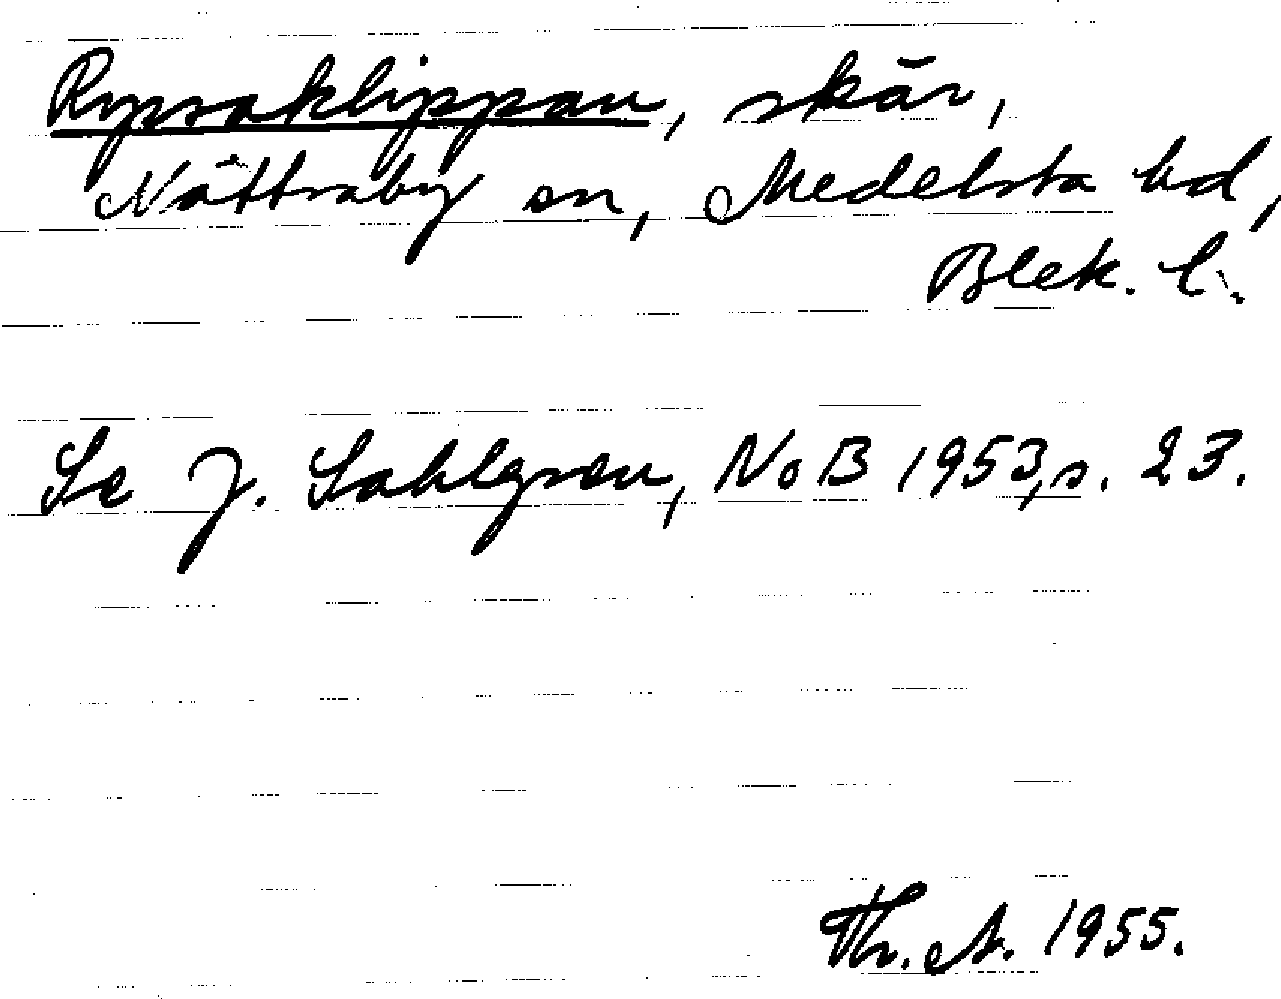 Rypsaklippan, skär,
Nättraby sn, Medelsta hd,
Blek. l.
Se J. Sahlgren, NoB 1953, s. 23.
Th. A. 1955.